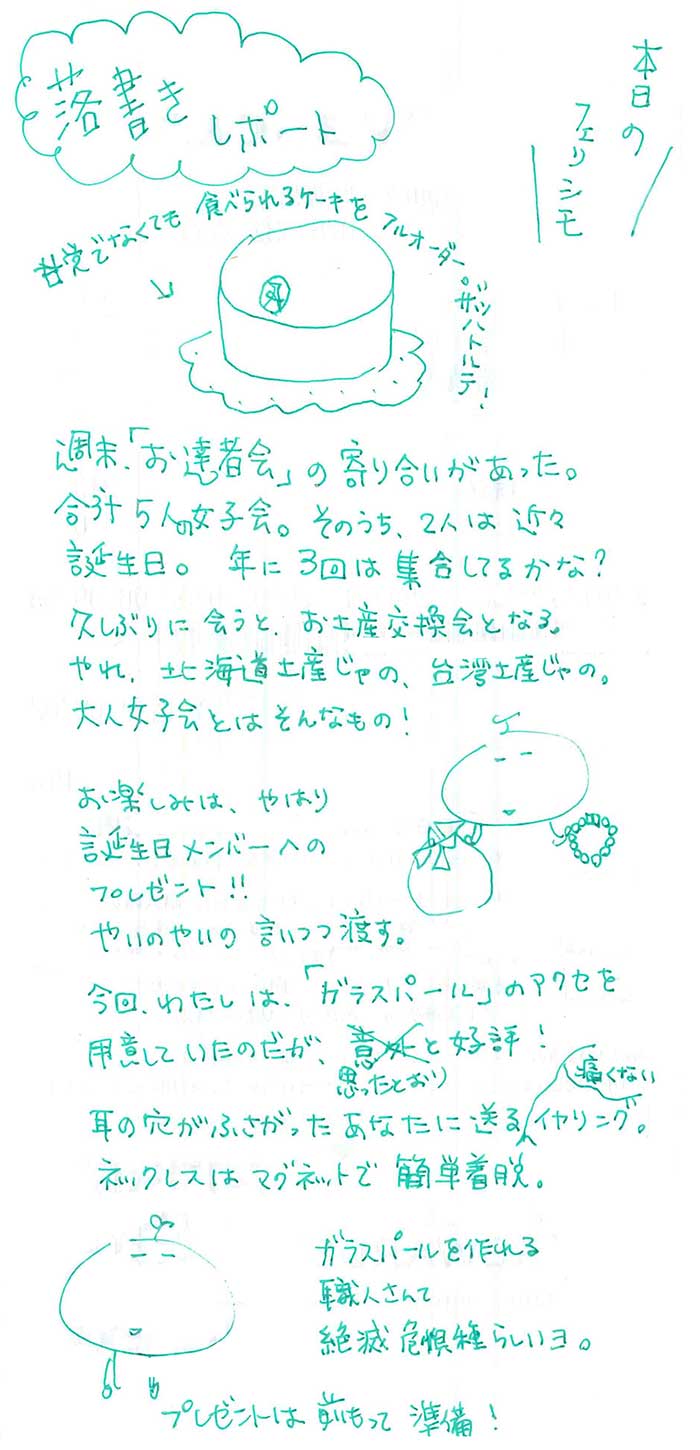 落書き
レポート
本日の
フェリシモ
甘党でなくても 食べられるケーキを フルオーダー。ザッハトルテ!
週末、「お達者会」の寄り合いがあった。
合計5人の女子会。そのうち、2人は近々
誕生日。 年に3回は集合してるかな?
久しぶりに会うと、お土産交換会となる。
やれ、北海道土産じゃの、台湾土産じゃの。
大人女子会とはそんなもの!
お楽しみは、やはり
誕生日メンバーへの
プレゼント!!
やいのやいの 言いつつ渡す。
今回、わたしは、「ガラスパール」のアクセを
用意していたのだが、意外と好評!
思ったとおり
痛くない
耳の穴がふさがった あなたに送るイヤリング。
ネックレスは マグネットで 簡単着脱。
ガラスパールを作れる
職人さんて
絶滅危惧種らしいヨ。
プレゼントは 前もって 準備!